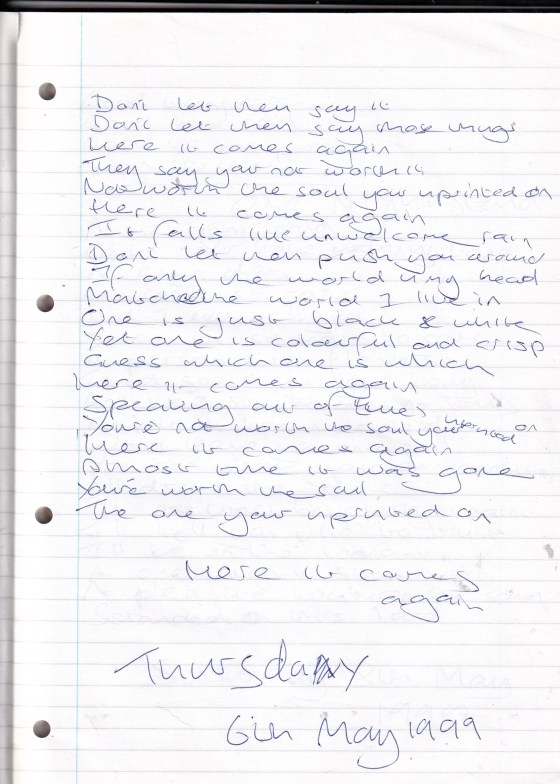 Don't let them say it
Don't let them say those things
Here it comes again
They say your not worth it
Not worth the soul your inprinted on
Here it comes again
It falls like unwelcome rain
Don't let them push you around
If only the world in my head
Matched the world I live in
One is just black & white
Yet one is colourful and crisp
Guess which one is which
Here it comes again
Speaking out of
You're not worth the soul your inprinted on
Here it comes again
Almost time it was gone
You're worth the soul
The one your inprinted on
Here it comes
again
Thursday
6th May 1999